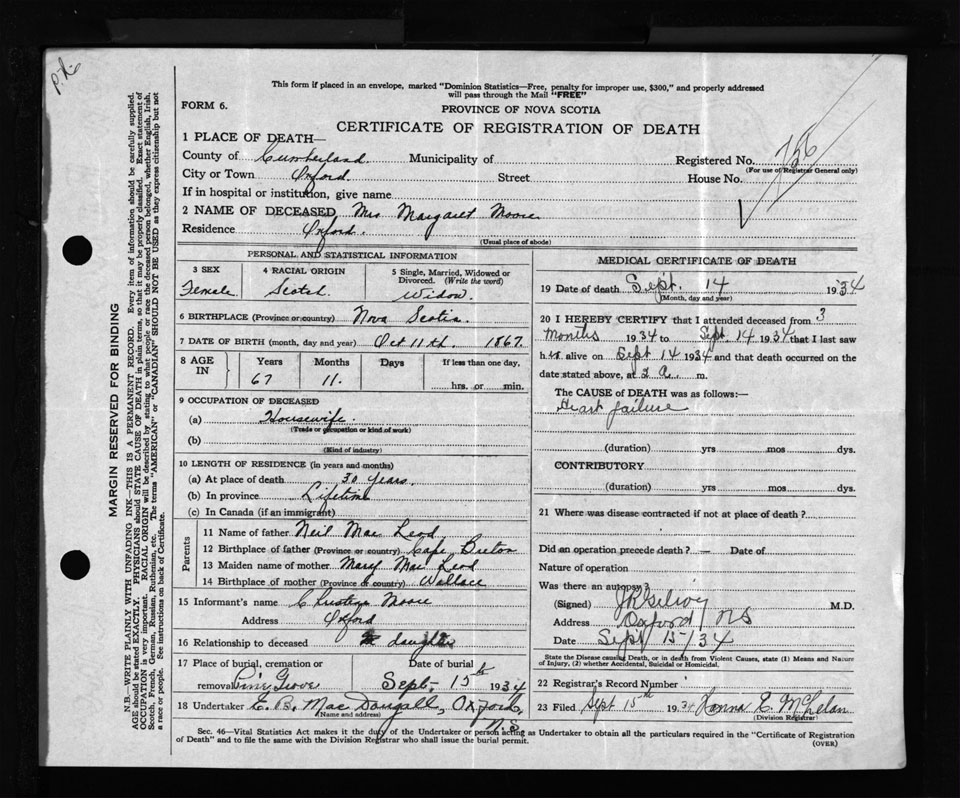 This form if placed in an envelope, marked "Dominion Statistics—Free, penalty for improper use, $300," and properly addressed
will pass through the Mail "FREE"
FORM 6.
PROVINCE OF NOVA SCOTIA
CERTIFICATE OF REGISTRATION OF DEATH
1 PLACE OF DEATH—
County of Cumberland Municipality of Registered No. 756
(For use of Registrar General only)
City or Town Oxford Street House No.
If in hospital or institution, give name
2 NAME OF DECEASED Mrs Margaret Moore
Residence Oxford.
(Usual place of abode)
PERSONAL AND STATISTICAL INFORMATION
3 SEX
Female
4 RACIAL ORIGIN
Scotch
5 Single, Married, Widowed or
Divorced. (Write the word)
Widow
6 BIRTHPLACE (Province or country) Nova Scotia
7 DATE OF BIRTH (month, day and year) Oct 11th. 1867.
8 AGE
IN
Years
67
Months
11.
Days
If less than one day,
hrs. or min.
9 OCCUPATION OF DECEASED
(a) Housewife
(Trade or occupation or kind of work)
(b)
(Kind of industry)
10 LENGTH OF RESIDENCE (in years and months)
(a) At place of death 30 Years.
(b) In province Lifetime
(c) In Canada (if an immigrant)
Parents
11 Name of father Neil Mac Leod
12 Birthplace of father (Province or country) Cape Breton
13 Maiden name of mother Mary Mac Leod
14 Birthplace of mother (Province or country) Wallace
15 Informant's name Moore
Address Oxford
16 Relationship to deceased daughter
17 Place of burial, cremation or
removal Pine Grove
Date of burial
Sept. 15th 1934
18 Undertaker E. B. Mac Dougall, Oxford, N.S.
(Name and address)
MEDICAL CERTIFICATE OF DEATH
19 Date of death Sept. 14 1934
(Month, day and year)
20 I HEREBY CERTIFY that I attended deceased from 3
Months 1934 to Sept 14 1934 that I last saw
her alive on Sept 14 1934 and that death occurred on the
date stated above, at 2 a. m.
The CAUSE OF DEATH was as follows:—
Heart failure
(duration) yrs mos dys.
CONTRIBUTORY
(duration) yrs mos dys.
21 Where was disease contracted if not at place of death?
Did an operation precede death? — Date of
Nature of operation
Was there an autopsy?
(Signed) M.D.
Address Oxford NS
Date Sept 15/34
State the Disease causing Death, or in death from Violent Causes, state (1) Means and Nature
of Injury, (2) whether Accidental, Suicidal or Homicidal.
22 Registrar's Record Number
23 Filed Sept 15th 1934 Hanna E McLelan
(Division Registrar)
Sec. 46—Vital Statistics Act makes it the duty of the Undertaker or person acting as Undertaker to obtain all the particulars required in the "Certificate of Registration
of Death" and to file the same with the Division Registrar who shall issue the burial permit.
(OVER)
MARGIN RESERVED FOR BINDING
N.B.—WRITE PLAINLY WITH UNFADING INK—THIS IS A PERMANENT RECORD. Every item of information should be carefully supplied.
AGE should be stated EXACTLY. PHYSICIANS should STATE CAUSE OF DEATH in plain terms, so that it may be properly classified. Exact statement of
OCCUPATION is very important. RACIAL ORIGIN will be described by stating to what people or race the deceased person belonged, whether English, Irish,
Scotch, French, German, Russian, Ruthenian, etc. The terms "AMERICAN" or "CANADIAN" SHOULD NOT BE USED as they express citizenship but not
a race or people. See instructions on back of Certificate.